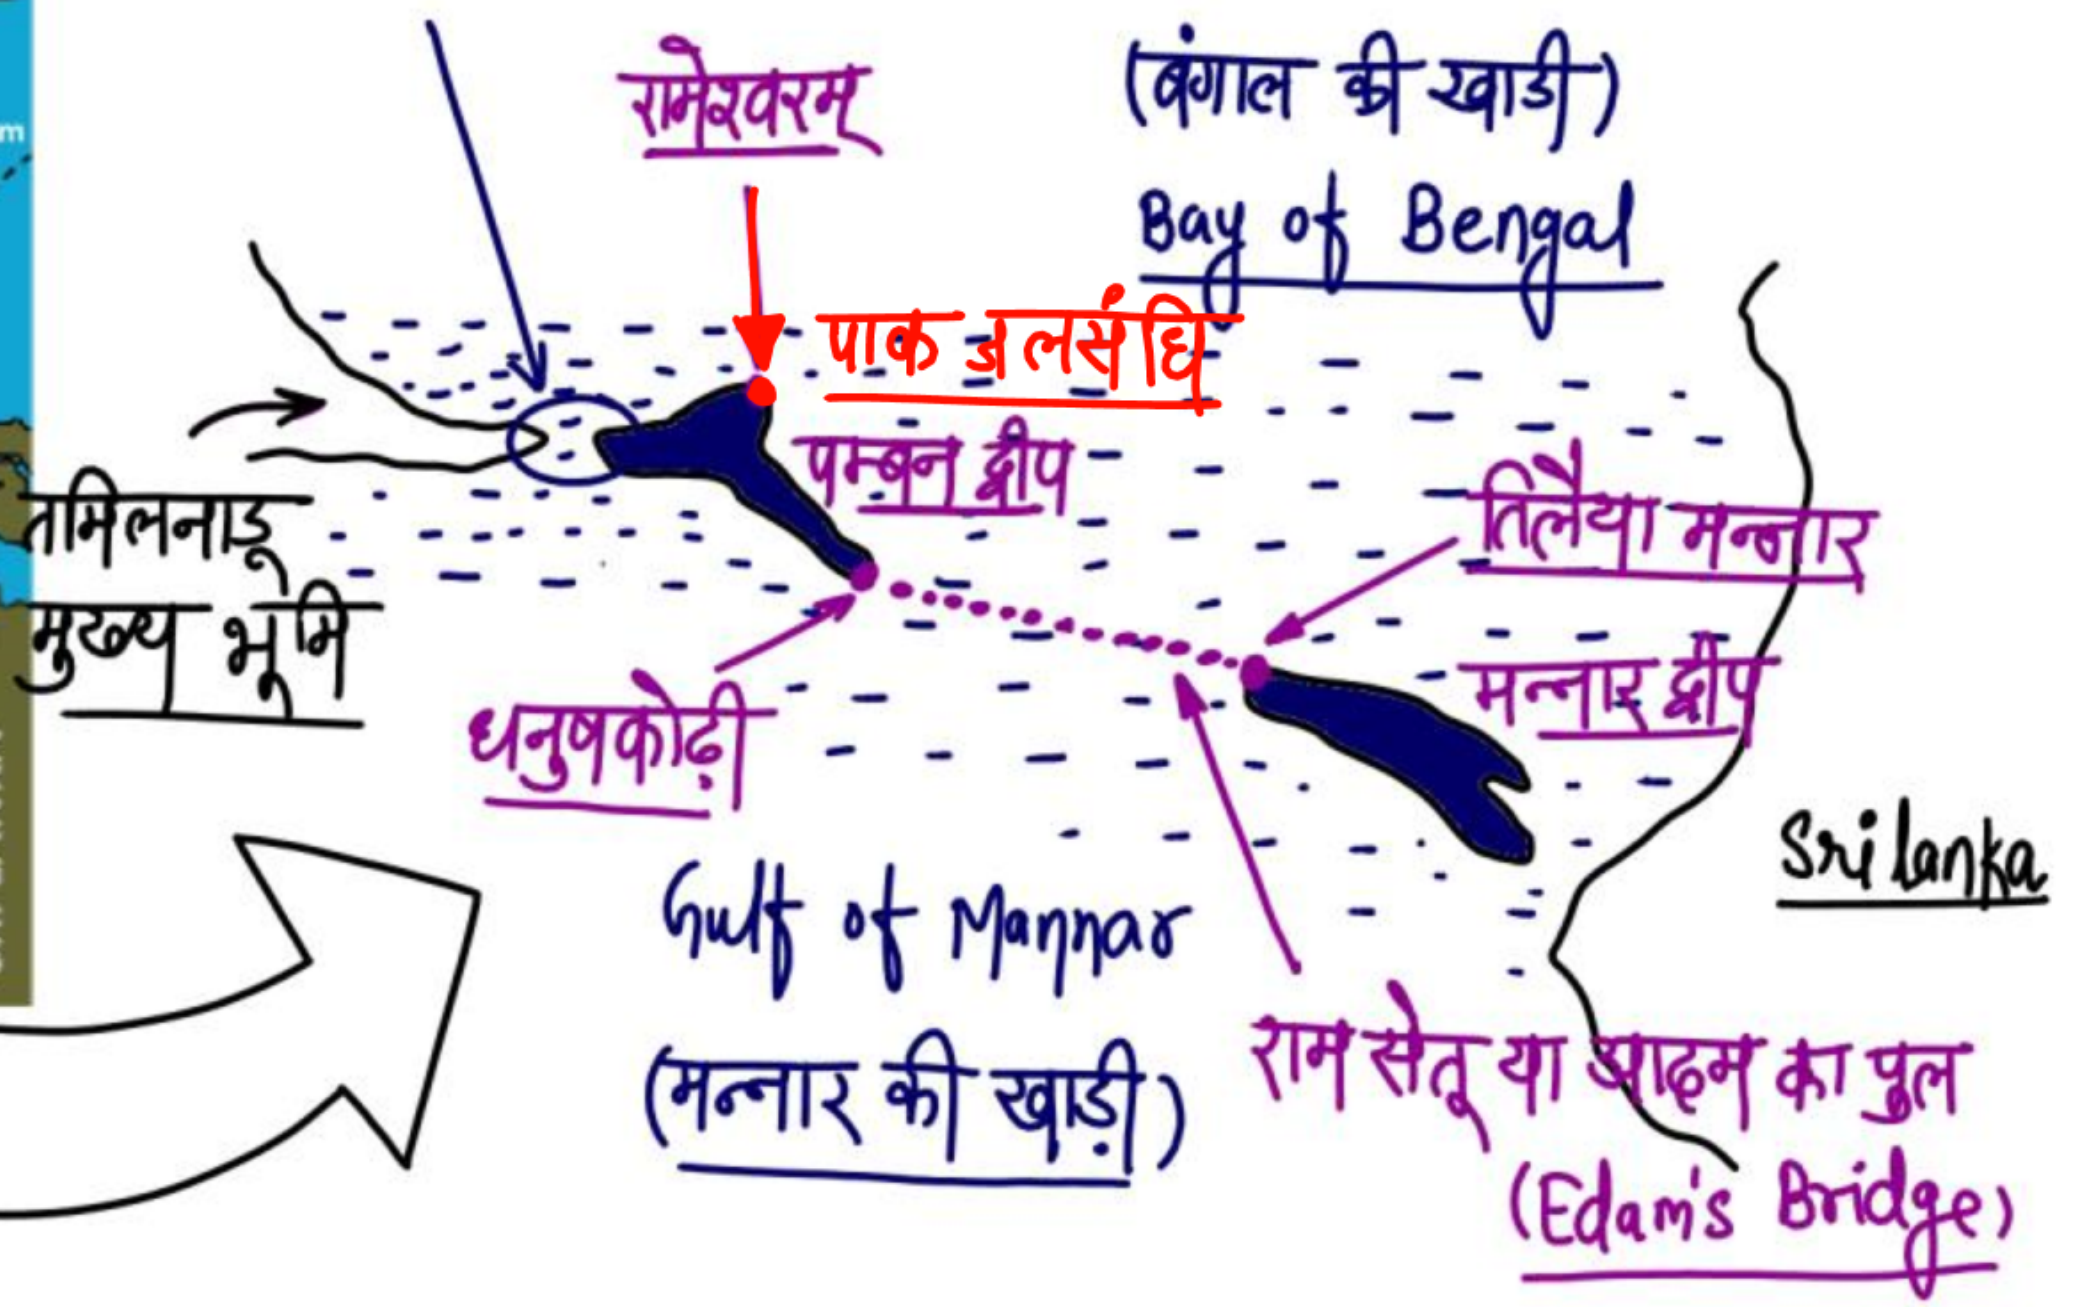 m
रामेश्वरम्
(बंगाल की खाडी)
Bay of Bengal
पाक जलसंधि
पम्बन द्वीप
तमिलनाडू
मुख्य भूमि
तिलैया मन्नार
मन्नार द्वीप
धनुषकोढ़ी
Sri lanka
Gulf of Mannar
(मन्नार की खाड़ी)
राम सेतू या आदम का पुल
(Edam's Bridge)